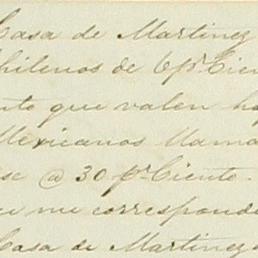 Casa de Martinez
Chilenos de 6 pr. Cien
nto que valen ha
Mexicanos llama
se @ 30 pr. Ciento.
ue me corresponde
Casa de Martinez